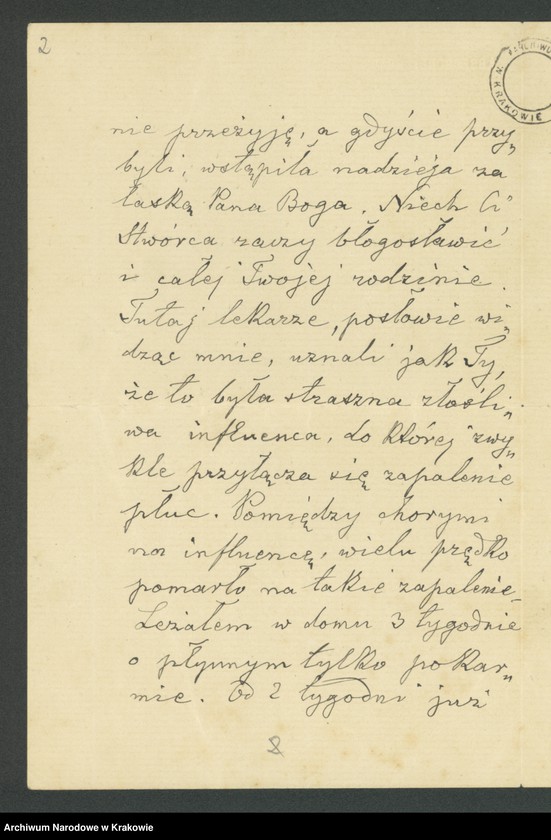 2
ARCHIWUM N. W KRAKOWIE
nie przeżyję, a gdyście przy„
byli, wstąpiła nadzieja za
łaską Pana Boga. Niech Ci
Stwórca raczy błogosławić
i całej Twojej rodzinie.
Tutaj lekarze, posłowie wi„
dząc mnie, uznali jak Ty,
że to była straszna złośli„
wa influenca, do której zwy„
kle przyłącza się zapalenie
płuc. Pomiędzy chorymi
na influencę, wielu prędko
pomarło na takie zapalenie.
Leżałem w domu 3 tygodnie
o płynnym tylko pokar„
mie. Od 2 tygodni już
8
Archiwum Narodowe w Krakowie